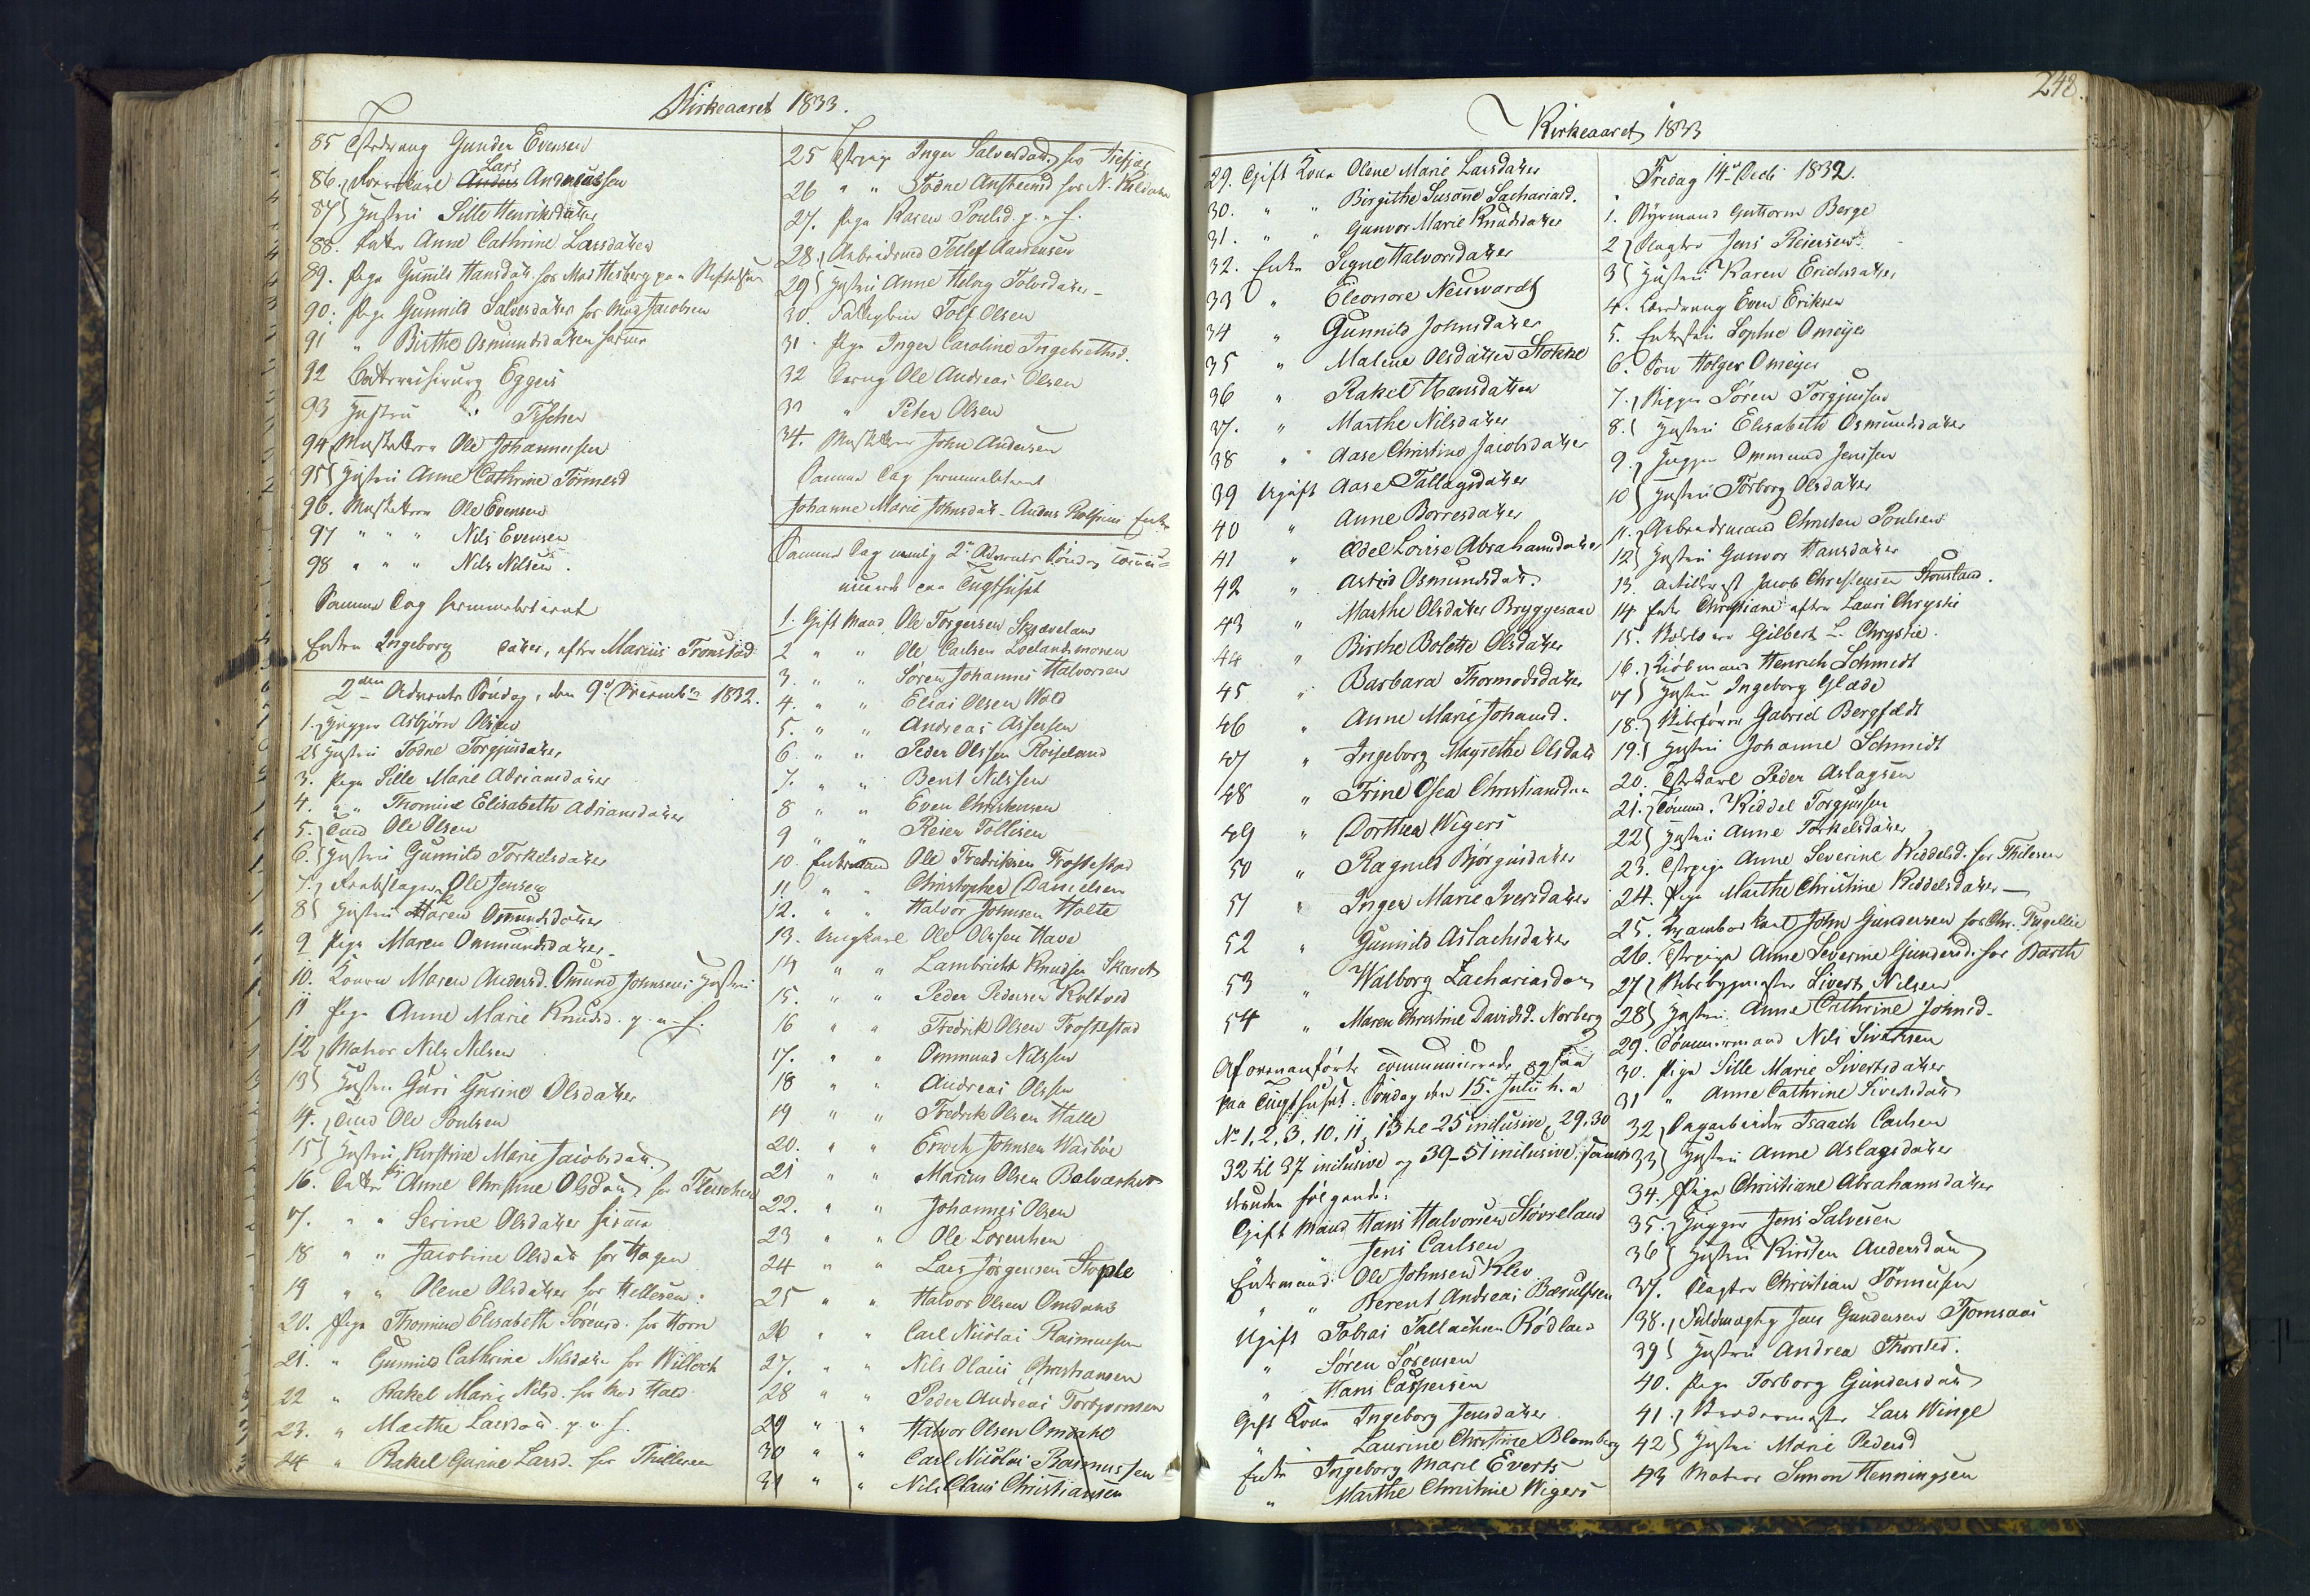 Kirkeaaret 1833.
85 Tstdreng Gunder Evensen
86. Lars Anders Andreassen
87 Hustru Sille Henriksdatter
88. Anne Cathrine Larsdatter
89. Pige Gunnild Hansdatt. for Mad Hesberg paa
90. Pige Gunnild Salvesdatter for Mad Jacobsen
91 " Birthe Osmundsdatter
92 Eggers
93 Hustru Do Fischer
94 Musketeer Ole Johannessen
95 Hustru Anne Cathrine Tormosd
96. Musketeer Ole Evensen
97 " " " Nils Evensen
98 " " " Nils Nilsen.
Samme Dag
Enken Ingeborg datter, efter Marius Tronstad
2den Advents Søndag, den 9d Decembr 1832.
1. Bygger Asbjørn Olsen
2 Hustru Todne Torgjusdatter
3. Pige Sille Marie Adriansdatter
4. " " Thomine Elisabeth Adriansdatter
5. Ole Olsen
6. Hustru Gunnild Torkelsdatter
7. Ole Jensen
8 Hustru Karen Omundsdatter
9 Pige Maren Ommundsdatter
10. Konen Maren Andersd. Omund Johnsens Hustru
11 Pige Anne Marie Knudsd. p. a. f.
12 Matros Nils Nilsen
13 Hustru Guri Gurine Olsdatter
14. Ole Poulsen
15 Hustru Kirstine Marie Jacobsdatt.
16. Anne Christine Olsdatt for Fleischer
17. " " Serine Olsdatter
18 " " Jacobine Olsdatt for Hagen
19 " " Olene Olsdatter for Hellesen
20. Pige Thomine Elisabeth Sørensd. for Horn
21. " Gunnild Cathrine Nilsdatter for Willoch
22 " Rakel Marie Nilsd. for Mad Hald
23. " Marthe Larsdatt. p. a. f.
24 " Rakel Gurine Larsd. for Thillesen
25 Tstpige Inger Salvesdatt. for
26 " " Todne for N.
27. Pige Karen Poulsd. p. a. f.
28. Arbeidsmd Tellef Aanensen
29 Hustru Anne Helvig Tolvsdatter
30. Tolf Olsen
31. Pige Inger Caroline Ingebrethsd.
32 Dreng Ole Andreas Olsen
33 " Peter Olsen
34. Musketeer John Andersen
Samme Dag
Johanne Marie Johnsdatt. Anders Enke
Samme Dag nemlig 2n Advents Søndag communi=
cerede paa Tugthuset
1. Gift Mand Ole Torgersen Skraveland
2 " " Ole Carlsen Loelandsmonen
3. " " Søren Johannes Halvorsen
4. " " Elias Olsen Wold
5. " " Andreas Assersen
6 " " Peder Olssen Roiseland
7. " " Bent Nilssen
8 " " Even Christensen
9 " " Reier Tollisen
10. Enkemand Ole Fredriksen Frostestad
11 " " Christopher Danielsen
12. " " Halvor Johnsen Holte
13. Ungkarl Ole Olssen Have
14 " " Lambricht Knudsen Skaret
15. " " Peder Pedersen Koltved
16 " " Fredrik Olsen Frostestad
17. " " Ommund Nilssen
18 " " Andreas Olssen
19 " " Fredrik Olsen Halle
20. " " Enoch Johnsen Wasbøe
21 " " Marius Olsen Balværket
22. " " Johannes Olsen
23 " " Ole Lorenthen
24 " " Lars Jörgensen Stople
25 " " Halvor Olsen Omdahl
26 " " Carl Nicolai Rasmussen
27. " " Nils Olaus Christiansen
28 " " Peder Andreas Torbjornsen
29 " " Halvor Olsen Omdahl
30 " " Carl Nicolai Rasmussen
31 " " Nils Claus Christiansen
248.
Kirkeaaret 1833
29. Gift Kone Olene Marie Larsdatter
30. " " Birgithe Susane Sachariasd.
31. " " Gunvor Marie Knudsdatter
32. Enke Signe Halvorsdatter
33 " Eleonore Neuwardt
34 " Gunnild Johnsdatter
35 " Malene Olsdatter Stokke
36 " Rakel Hansdatter
37. " Marthe Nilsdatter
38 " Aase Christine Jacobsdatter
39 Ugift Aase Tallagsdatter
40 " Anne Borresdatter
41 " Edel Lovise Abrahamsdatter
42 " Astrid Osmundsdatt.
43 " Marthe Olsdatter Bryggesaae
44 " Birthe Bolette Olsdatter
45 " Barbara Thormodsdatter
46 " Anne Marie Johansd.
47 " Ingeborg Magrethe Olsdatt
48 " Trine Osea Christiansdtr
49 " Dorthea Wigers
50 " Ragnild Bjørgusdatter
51 " Inger Marie Iversdatter
52 " Gunnild Aslachsdatter
53 " Walborg Zachariasdatt
54 " Maren Christine Davidsd. Norberg
Af ovenanførte communicerede ogsaa
paa Tugthuset. Søndag den 15. Julii h. a
No 1, 2, 3, 10, 11, 13 til 25 inclusive, 29, 30
32 til 37 inclusive og 39-51 inclusive, samt
desuden følgende:
Gift Mand Hans Halvorsen Støvreland
" " Jens Carlsen
Enkemand Ole Johnsen Klev
" " Berent Andreas Bærulfsen
Ugift Tobias Tallachsen Rödland
" Søren Sørensen
" Hans Caspersen
Gift Kone Ingeborg Jensdatter
" " Laurine Christine Blomberg
Enke Ingeborg Marie Everts
" Marthe Christine Wigers
Fredag 14d Decb 1832.
1. Styrmand Guttorm Berge
2 Slagter Jens Reiersen
3 Hustru Karen Erichsdatter
4. Even Eriksen
5. Sophie Omeyer
6. Søn Holger Omeyer
7. Rigger Søren Torgjussen
8. Hustru Elisabeth Osmundsdatter
9. Bygger Ommund Jenssen
10 Hustru Torborg Olsdatter
11. Arbeidsmand Christen Poulsen
12 Hustru Gunvor Hansdatter
13 Artillerist Jacob Christensen
14 Enke Christiane efter Lauri Chrystie
15. Gilbert L. Chrystie.
16. Kiöbmand Henrich Schmidt
17 Hustru Ingeborg Glade
18. Skibsfører Gabriel Bergfeldt
19. Hustru Johanne Schmidt
20. Tstkarl Peder Aslagsen
21. Tömmd. Kiddel Torgjussen
22 Hustru Anne Torkelsdatter
23. Tstpige Anne Severine Kiddelsd. for Thilesen
24. Pige Marthe Christine Kiddelsdatter
25. Krambodkarl John Gundersen for Chr. Fugellie
26. Tstpige Anne Severine Gundersd. for Barth
27 Skibsbygmester Sivert Nilsen
28 Hustru Anne Cathrine Johnsd.
29. Tömmermand Nils Sivertsen
30. Pige Sille Marie Sivertsdatter
31 " Anne Cathrine Sivertsdatt
32 Dagarbeider Isaach Carlsen
33 Hustru Anne Aslagsdatter
34. Pige Christiane Abrahamsdatter
35. Bygger Jens Salvesen
36 Hustru Kirsten Andersdatt
37. Slagter Christian Tönnesen
38. Fuldmægtig Jens Gundersen Tjomsaas
39 Hustru Andrea Thorsted.
40. Pige Torborg Gundersdatt
41. Lars Winge
42 Hustru Marie Pedersd
43 Matros Simon Henningsen